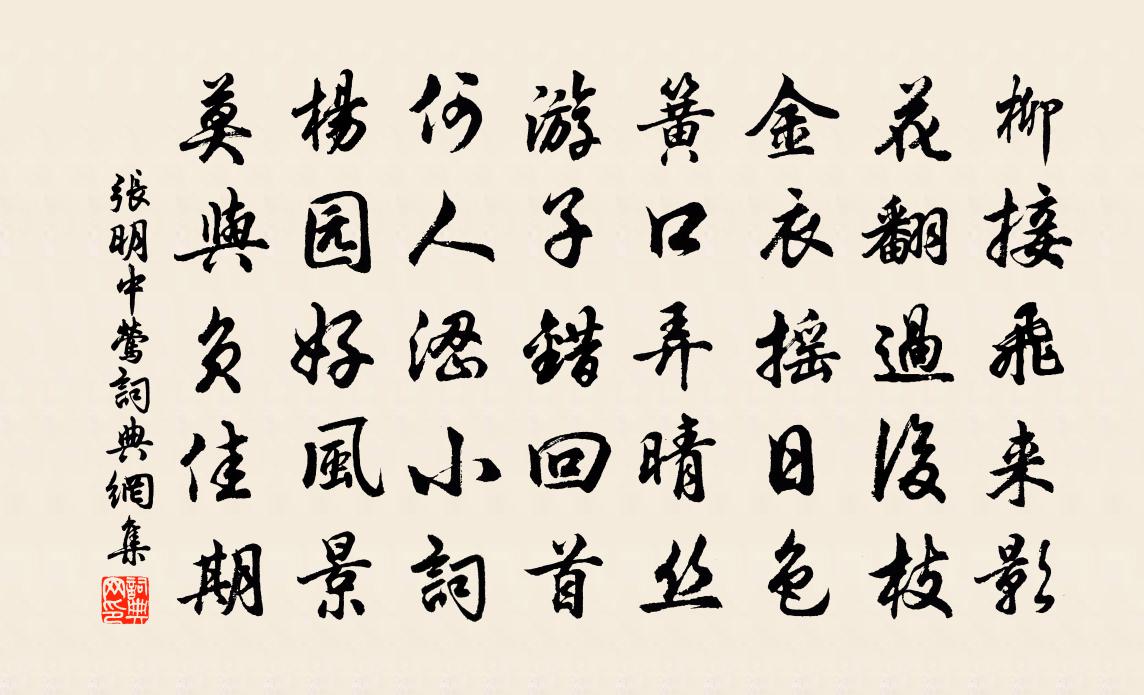 柳接飛来影
花翻過後枝
金衣摇日色
簧口弄晴丝
游子錯回首
何人濍小詞
楊园好風景
莫與負佳期
張明中鶯詞典網集
詞典网印